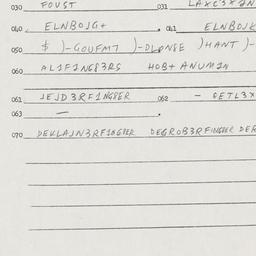 030 FOUST 031
040 ELNBOJG+ . 041 ELNBOJK
050 $ )-GOUFMT )-DLONSE )HANT )-
060 AL1F1NG83RS HOB+ ANUM1N
061 JEJD3RF1NG8ER 062 - GETL3X
063 — .
070 DEKLAJN3RF1NG8ER DEGROB3RFINGBER DER